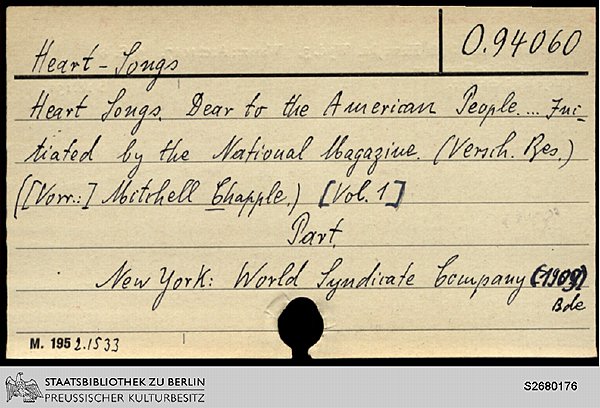 O.94060
Heart-Songs
Heart Songs. Dear to the American People.... Ini-
tiated by the National Magazine. (Versch. Bes.)
([Vorr.:] Mitchell Chapple.) [Vol. 1]
Part.
New York: World Syndicate Company (1909)
Bde
M. 1952.1533
STAATSBIBLIOTHEK ZU BERLIN
PREUSSISCHER KULTURBESITZ
S2680176